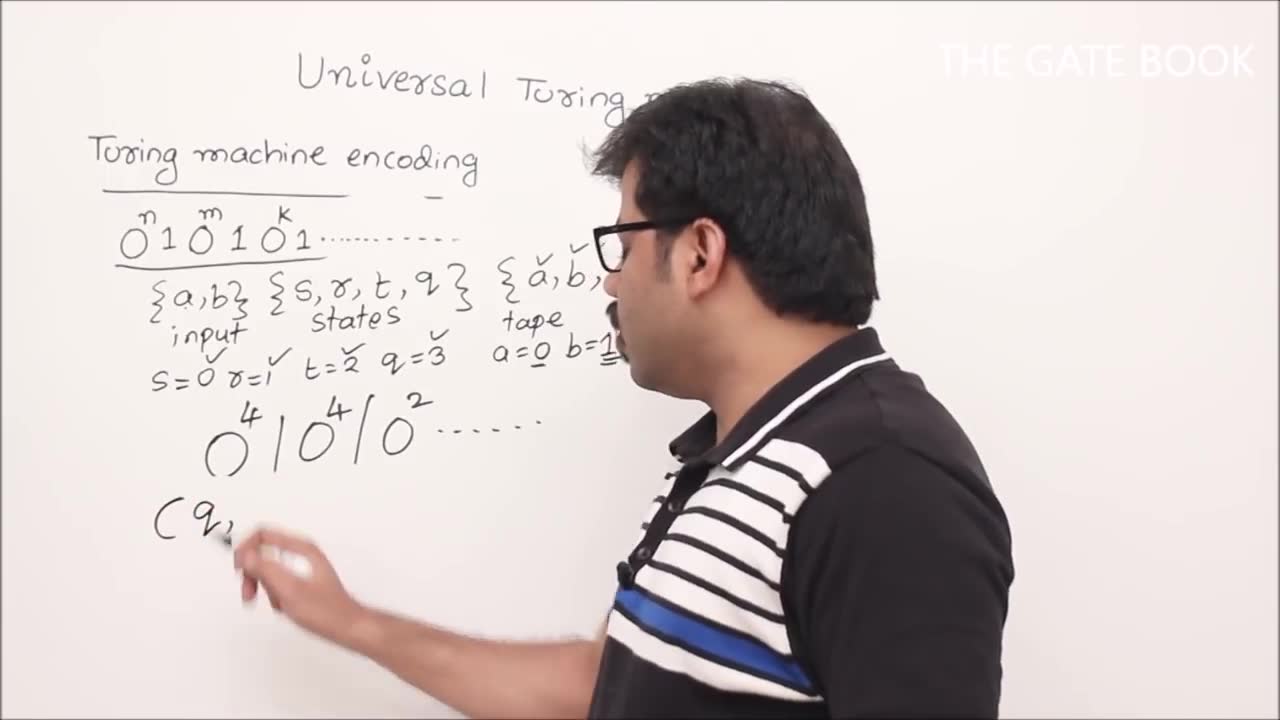 THE GATE BOOK
Universal Turing
Turing machine encoding
0ⁿ 1 0ᵐ 1 0ᵏ 1 ..............
{a,b} {s, r, t, q} {a, b,
input states tape
s=0 r=1 t=2 q=3 a=0 b=1
0⁴ | 0⁴ | 0² ......
(q,